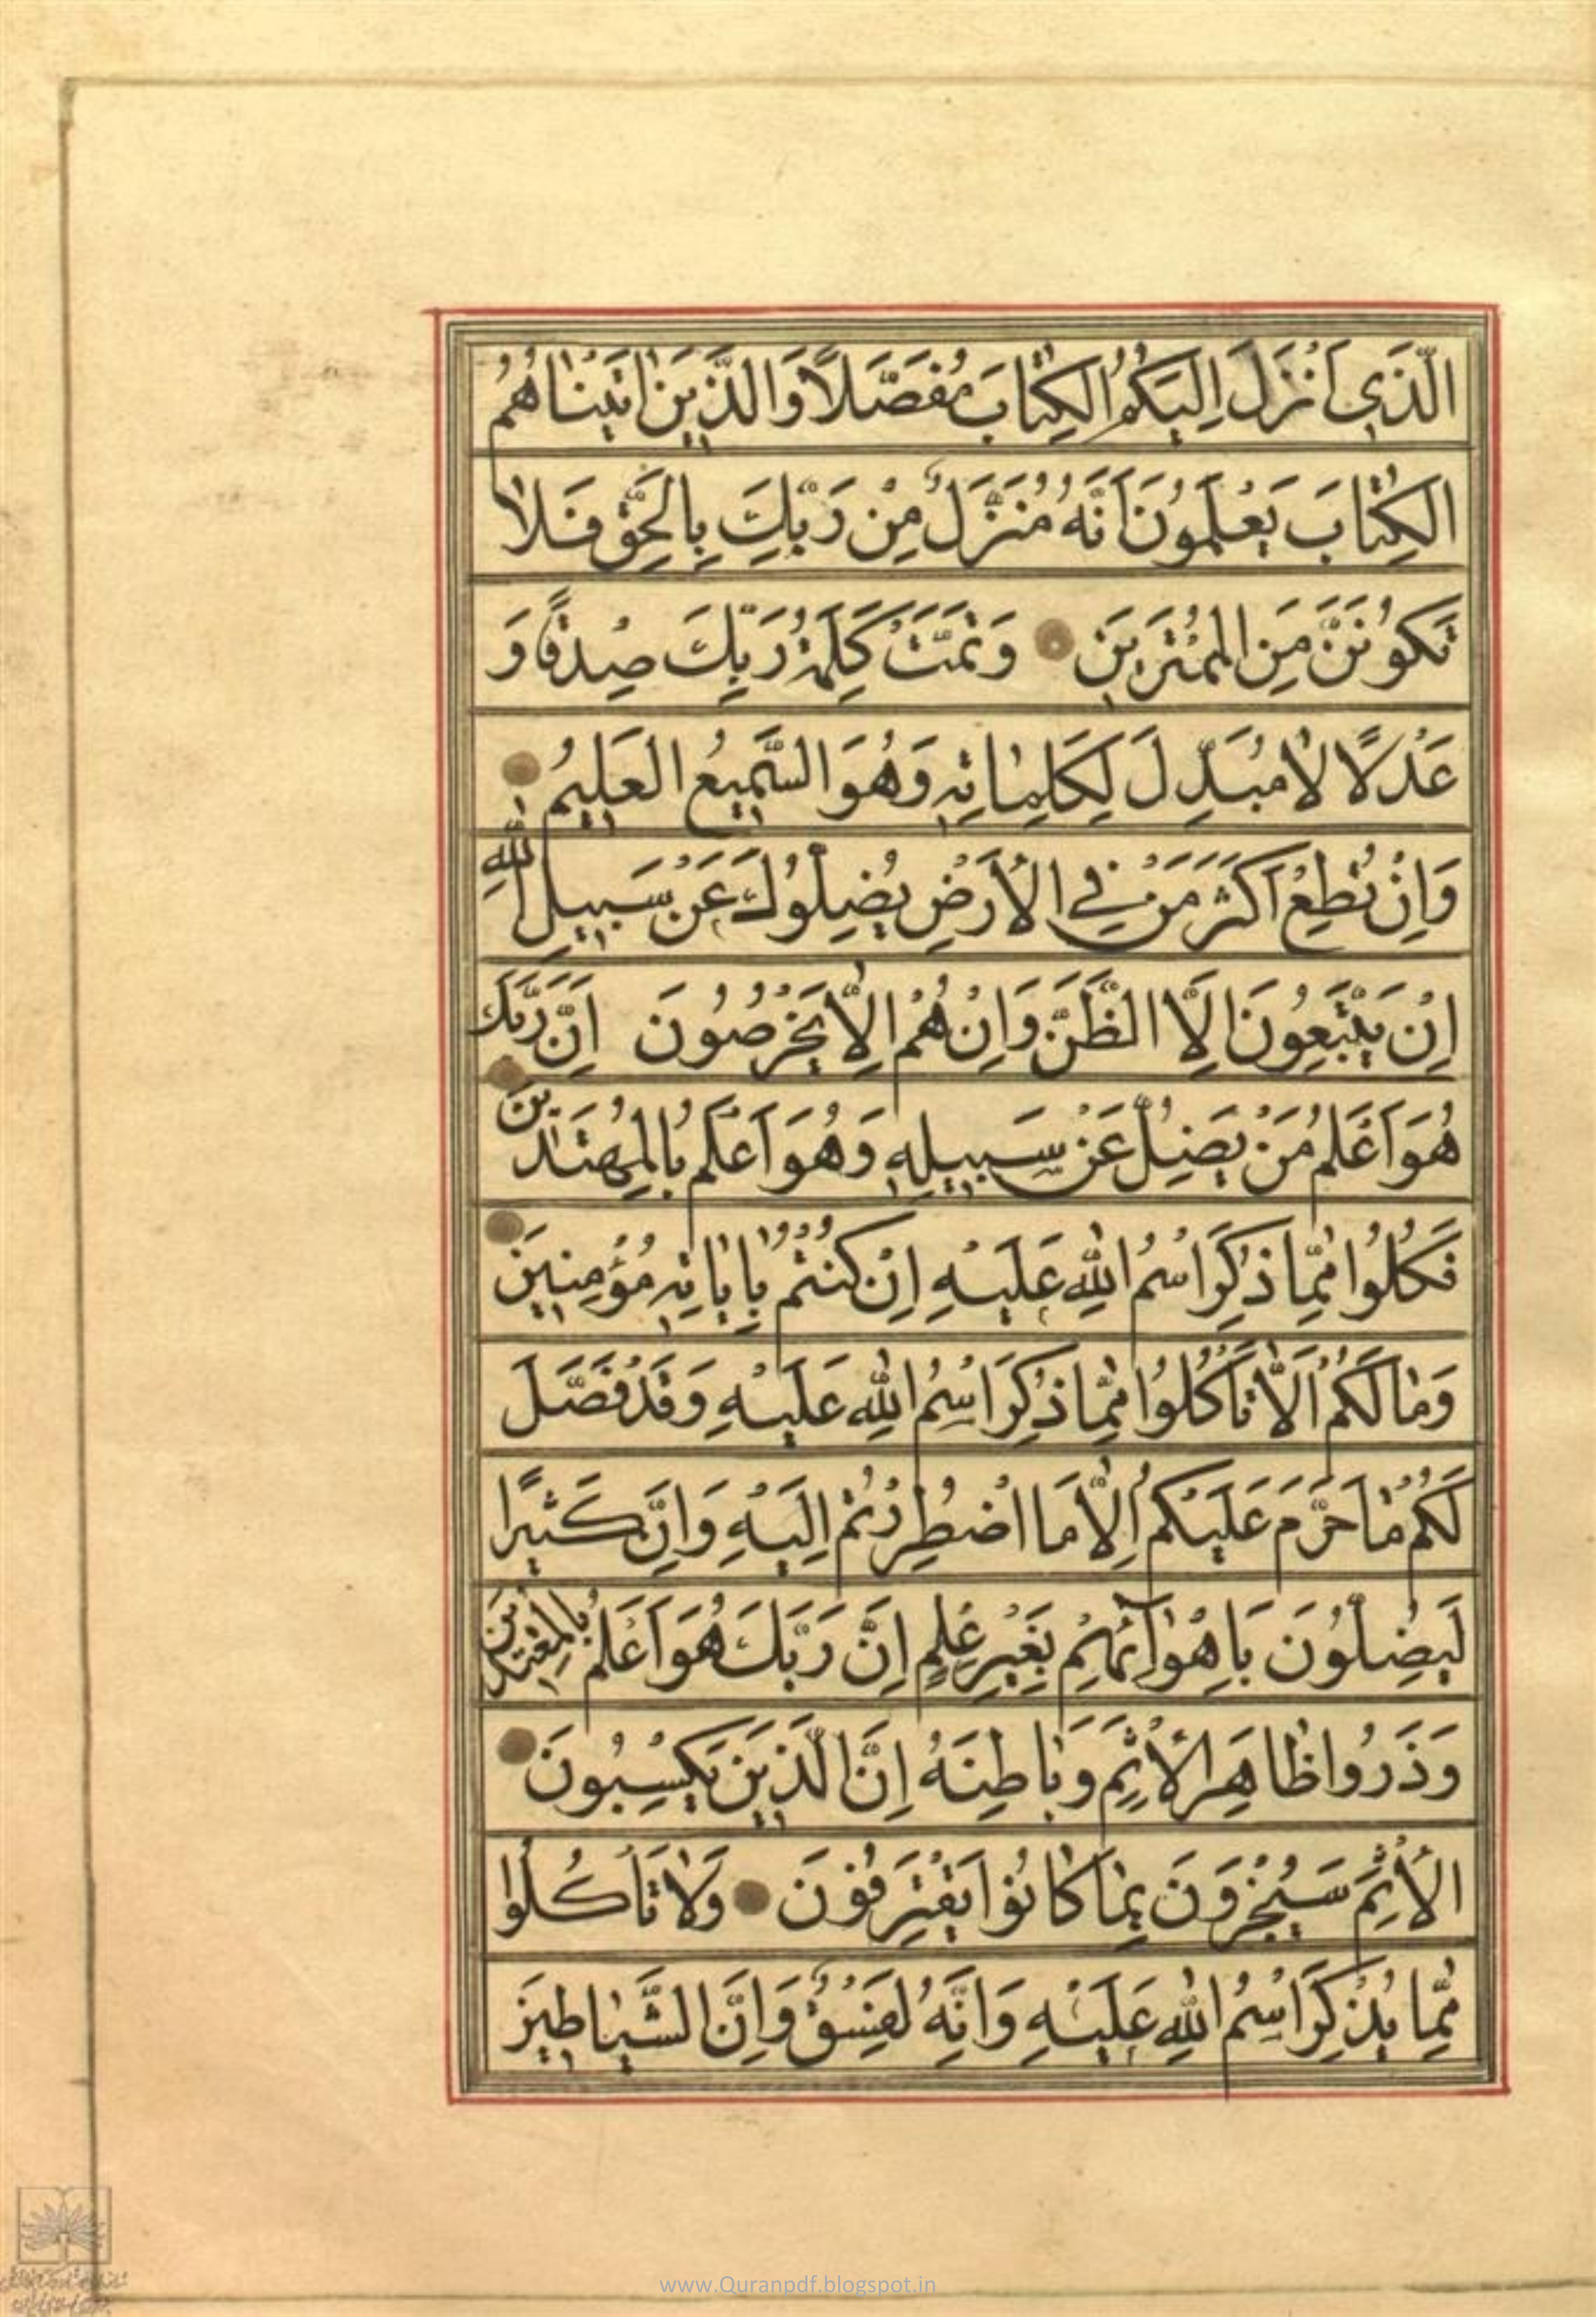 الَّذَي اَنْزَلَ اِلَيْكُمُ الكِتٰابَ مُفَصَّلاً وَالَّذينَ اٰتَيْنٰاهُمُ
الكِتٰابَ يَعْلَمُونَ اَنَّهُ مُنَزَّلٌ مِنْ رَبِّكَ بِالحَقِّ فَلاٰ
تَكُونَنَّ مِنَ المُمْتَرينَ وَتَمَّتْ كَلِمَةُ رَبِّكَ صِدْقًا وَ
عَدْلًا لاٰ مُبَدِّلَ لِكَلِمٰاتِهِ وَهُوَ السَّميعُ العَليمُ
وَاِنْ تُطِعْ اَكْثَرَ مَنْ فِي الأَرْضِ يُضِلُّوكَ عَنْ سَبيلِ اللهِ
اِنْ يَتَّبِعُونَ اِلَّا الظَّنَّ وَاِنْ هُمْ اِلّاٰ يَخْرُصُونَ اَنَّ رَبَّكَ
هُوَ اَعْلَمُ مَنْ يَضِلُّ عَنْ سَبيلِهِ وَهُوَ اَعْلَمُ بِالمُهْتَدينَ
فَكُلُوا مِمّٰا ذُكِرَ اسْمُ اللهِ عَلَيْهِ اِنْ كُنْتُمْ بِاٰيٰاتِهِ مُؤْمِنينَ
وَمٰا لَكُمْ اَلّاٰ تَاْكُلُوا مِمّٰا ذُكِرَ اسْمُ اللهِ عَلَيْهِ وَقَدْ فَصَّلَ
لَكُمْ مٰا حَرَّمَ عَلَيْكُمْ اِلّاٰ مَا اضْطُرِرْتُمْ اِلَيْهِ وَاِنَّ كَثيرًا
لَيُضِلُّونَ بِاَهْوٰآئِهِمْ بِغَيْرِ عِلْمٍ اِنَّ رَبَّكَ هُوَ اَعْلَمُ بِالمُعْتَدينَ
وَذَرُوا ظٰاهِرَ الأِثْمِ وَبٰاطِنَهُ اِنَّ الَّذينَ يَكْسِبُونَ
الأِثْمَ سَيُجْزَوْنَ بِمٰا كٰانُوا يَقْتَرِفُونَ وَلاٰ تَأْكُلُوا
مِمّٰا يُذْكَرِ اسْمُ اللهِ عَلَيْهِ وَاِنَّهُ لَفِسْقٌ وَاِنَّ الشَّيٰاطينَ
www.Quranpdf.blogspot.in